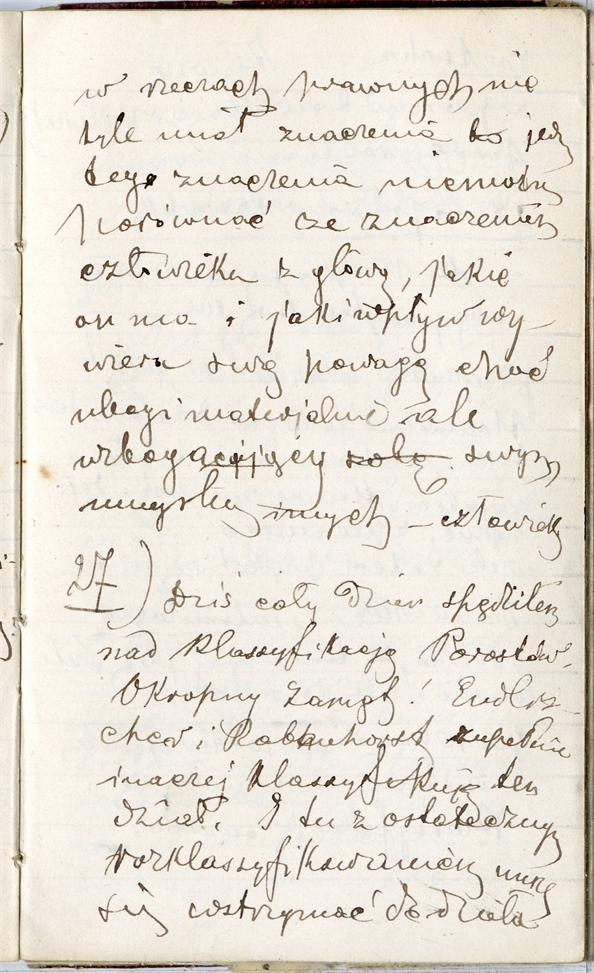 w rzeczach prawnych nie
tyle miał znaczenia to jedn
tego znaczenia niemożna
porównać ze znaczeniem
człowieka z głową, jakie
on ma i jaki wpływ wy-
wiera swą powagą choć
ubogi materjalnie ale
wzbogacający sobą swym
umysłem innych – człowiek
27) Dziś cały dzień spędziłem
nad klassyfikacją Porostów.
Okropny zamęt! Endli-
cher i Rabenhorst zupełnie
inaczej klassyfikują ten
dział. I tu z ostatecznym
rozklassyfikowaniem muszę
się wstrzymać do dzieła